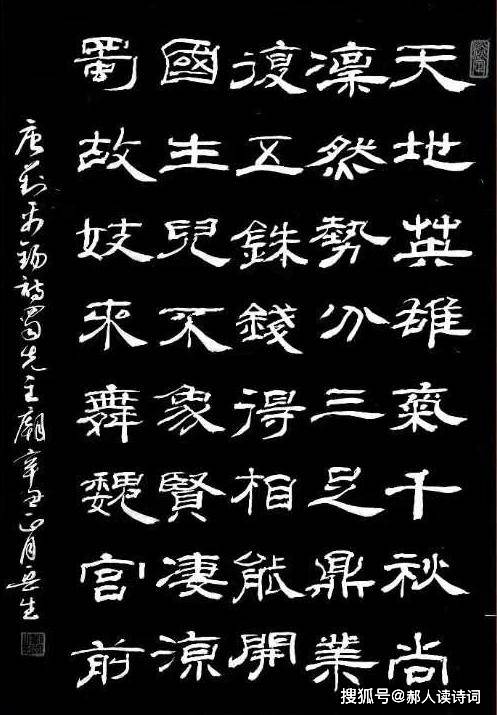 天地英雄氣千秋尚
凛然勢分三足鼎業
復五銖錢得相能開
國生兒不象賢凄涼
蜀故妓來舞魏宫前
唐劉禹錫詩蜀先主廟辛丑正月
搜狐号@郝人读诗词